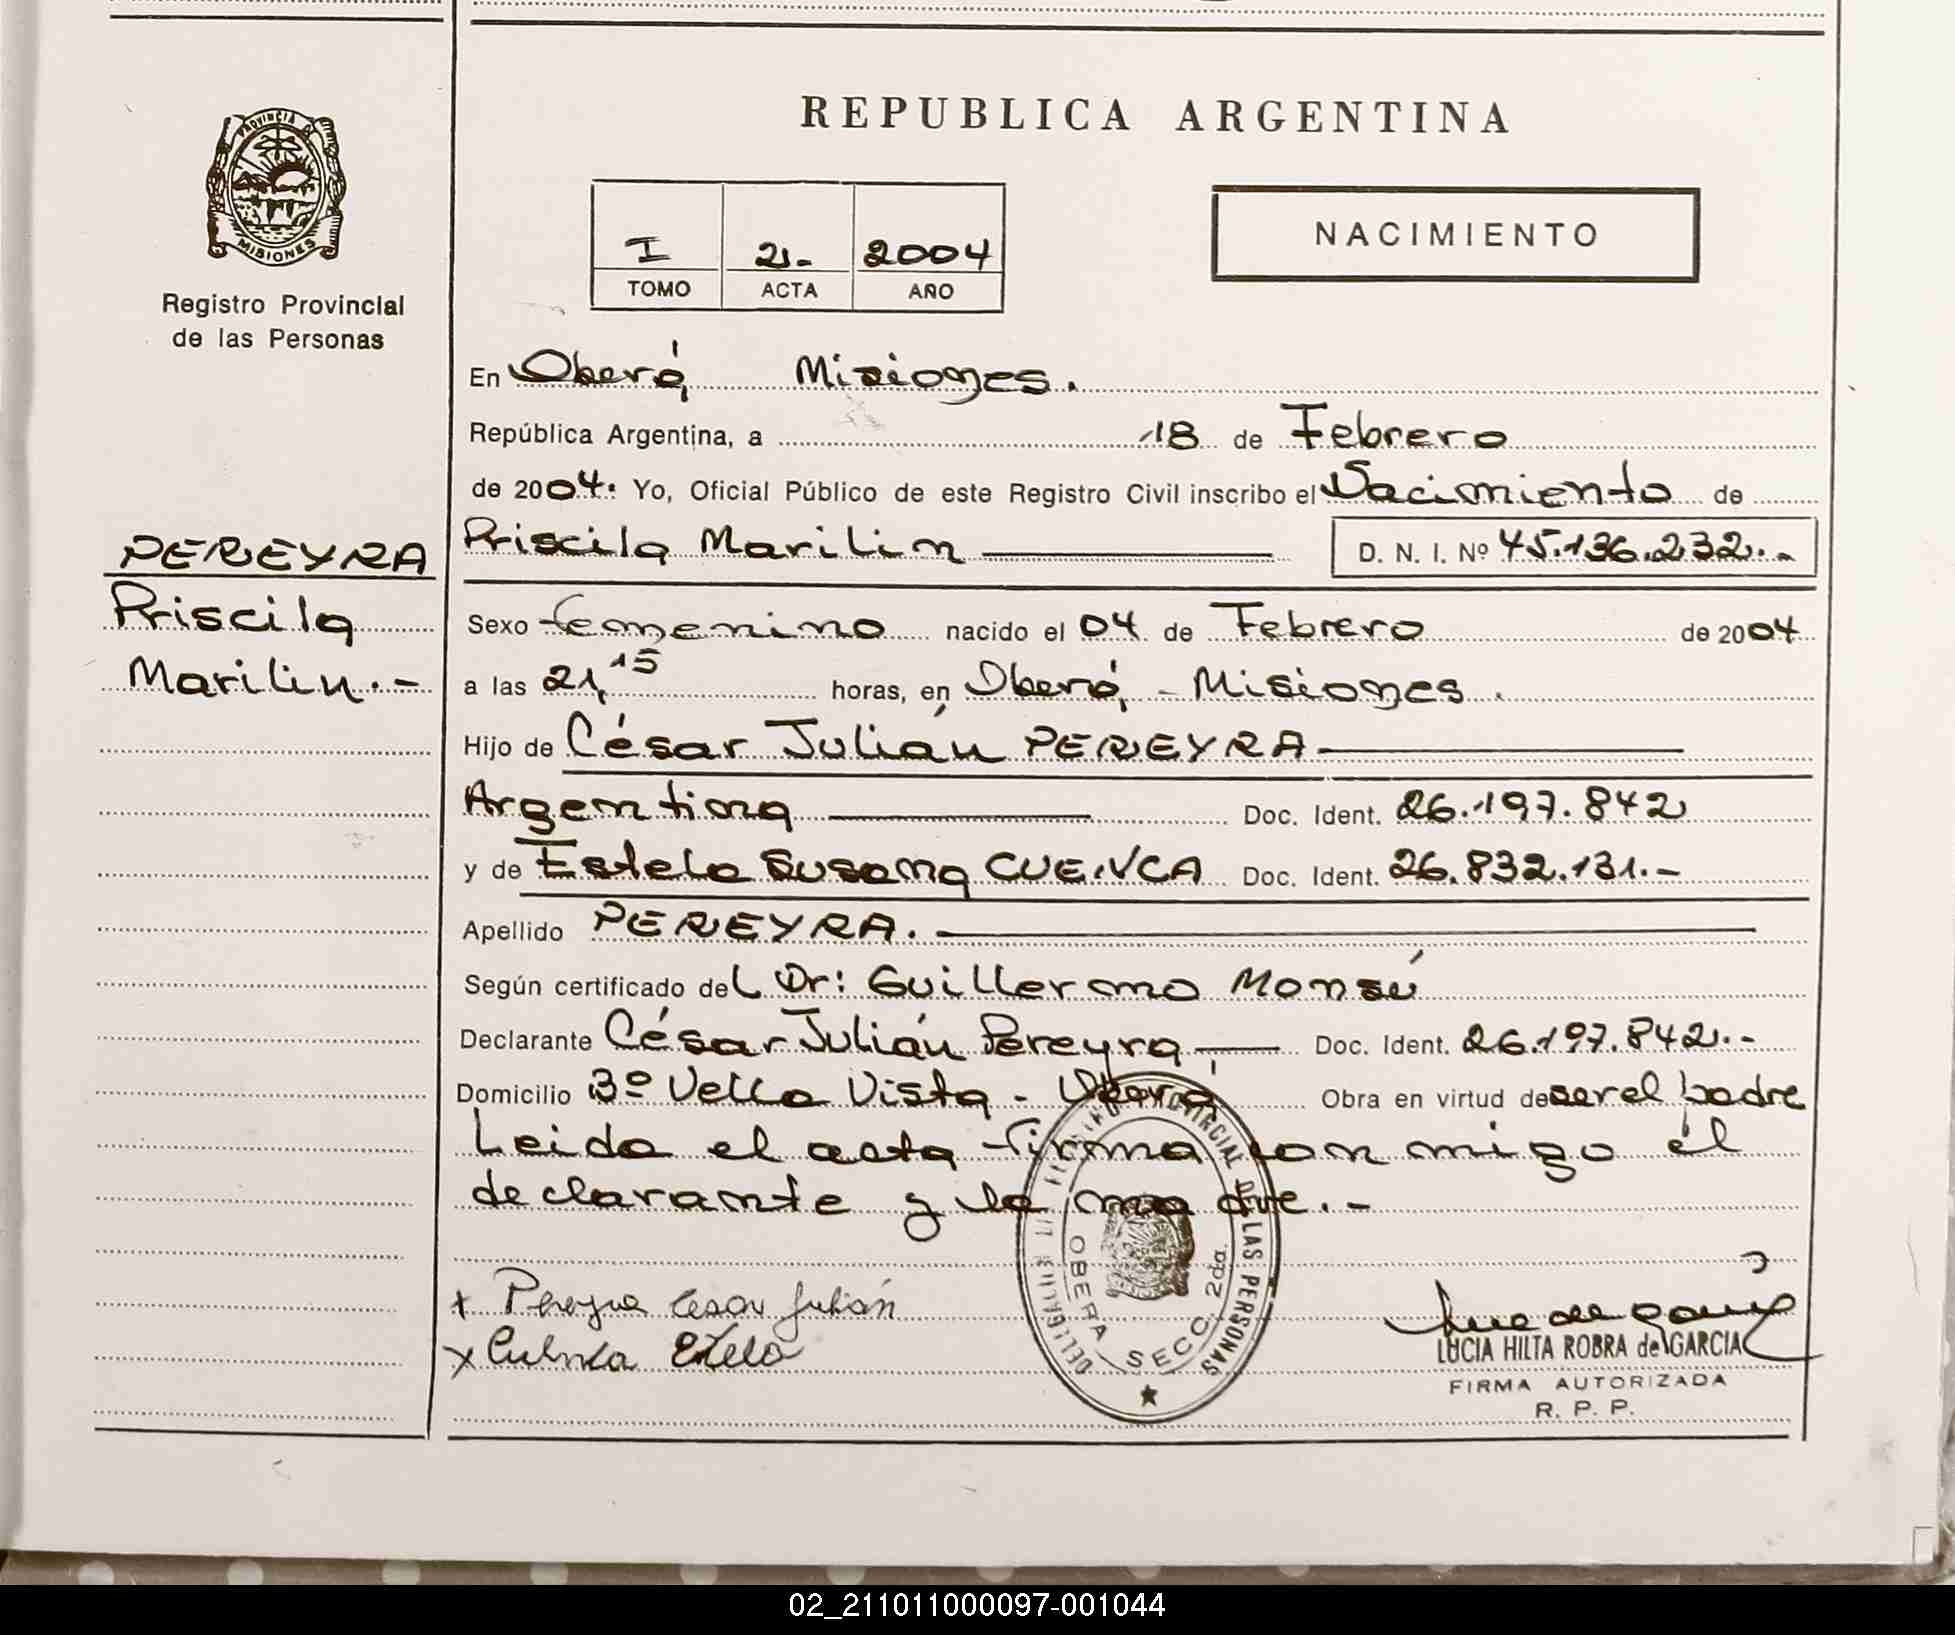 REPUBLICA ARGENTINA
PROVINCIA DE
MISIONES
Registro Provincial
de las Personas
I 21- 2004
TOMO ACTA AÑO
NACIMIENTO
En Oberá Misiones.
República Argentina, a 18 de Febrero
de 2004. Yo, Oficial Público de este Registro Civil inscribo el Nacimiento de
PEREYRA
Priscila
Marilin.-
Priscila Marilin D. N. I. Nº 45.136.232.-
Sexo femenino nacido el 04 de Febrero de 2004
a las 21,15 horas, en Oberá - Misiones.
Hijo de César Julián PEREYRA
Argentina Doc. Ident. 26.197.842
y de Estela Susana CUENCA Doc. Ident. 26.832.131.-
Apellido PEREYRA.
Según certificado del Dr: Guillermo Monsú
Declarante César Julián Pereyra Doc. Ident. 26.197.842.-
Domicilio Bº Vella Vista - Oberá Obra en virtud de ser el padre
Leida el acta firma con migo él
declarante y la madre.-
PROVINCIAL DE LAS PERSONAS
OBERA SECC. 2da.
x Pereyra Cesar Julián
x Cuenca Estela
LUCIA HILTA ROBRA de GARCIA
FIRMA AUTORIZADA
R. P. P.
02_211011000097-001044